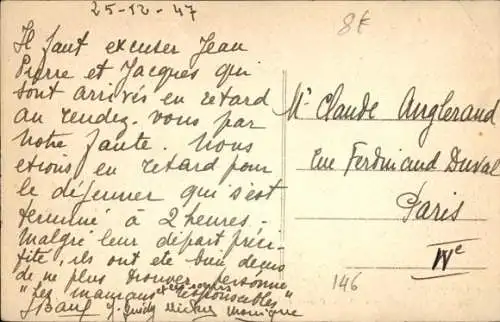 25-12-47
8€
Il faut excuser Jean
Pierre et Jacques qui
sont arrivés en retard
au rendez-vous par
notre faute. Nous
etions en retard pour
le déjeuner qui s'est
terminé à 2 heures.
Malgré leur départ préci-
pité, ils ont été bien deçus
de ne plus trouver personne
"Les mamans et responsables"
Monique
Mr Claude Anglerand
rue Ferdinand Duval
Paris
IVe
146